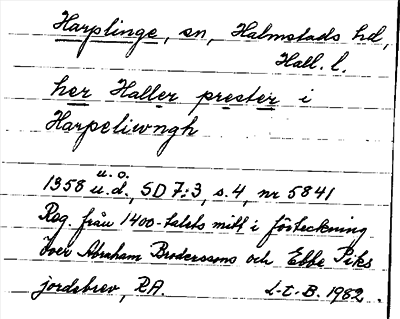 Harplinge, sn, Halmstads hd,
Hall. l.
her Haller prester i
Harpeliwngh
1358 u.o. u.d., SD 7:3, s. 4, nr 5841
Reg. från 1400-talets mitt i förteckning
över Abraham Broderssons och Ebbe Piks
jordebrev, RA. L.t.B. 1982.